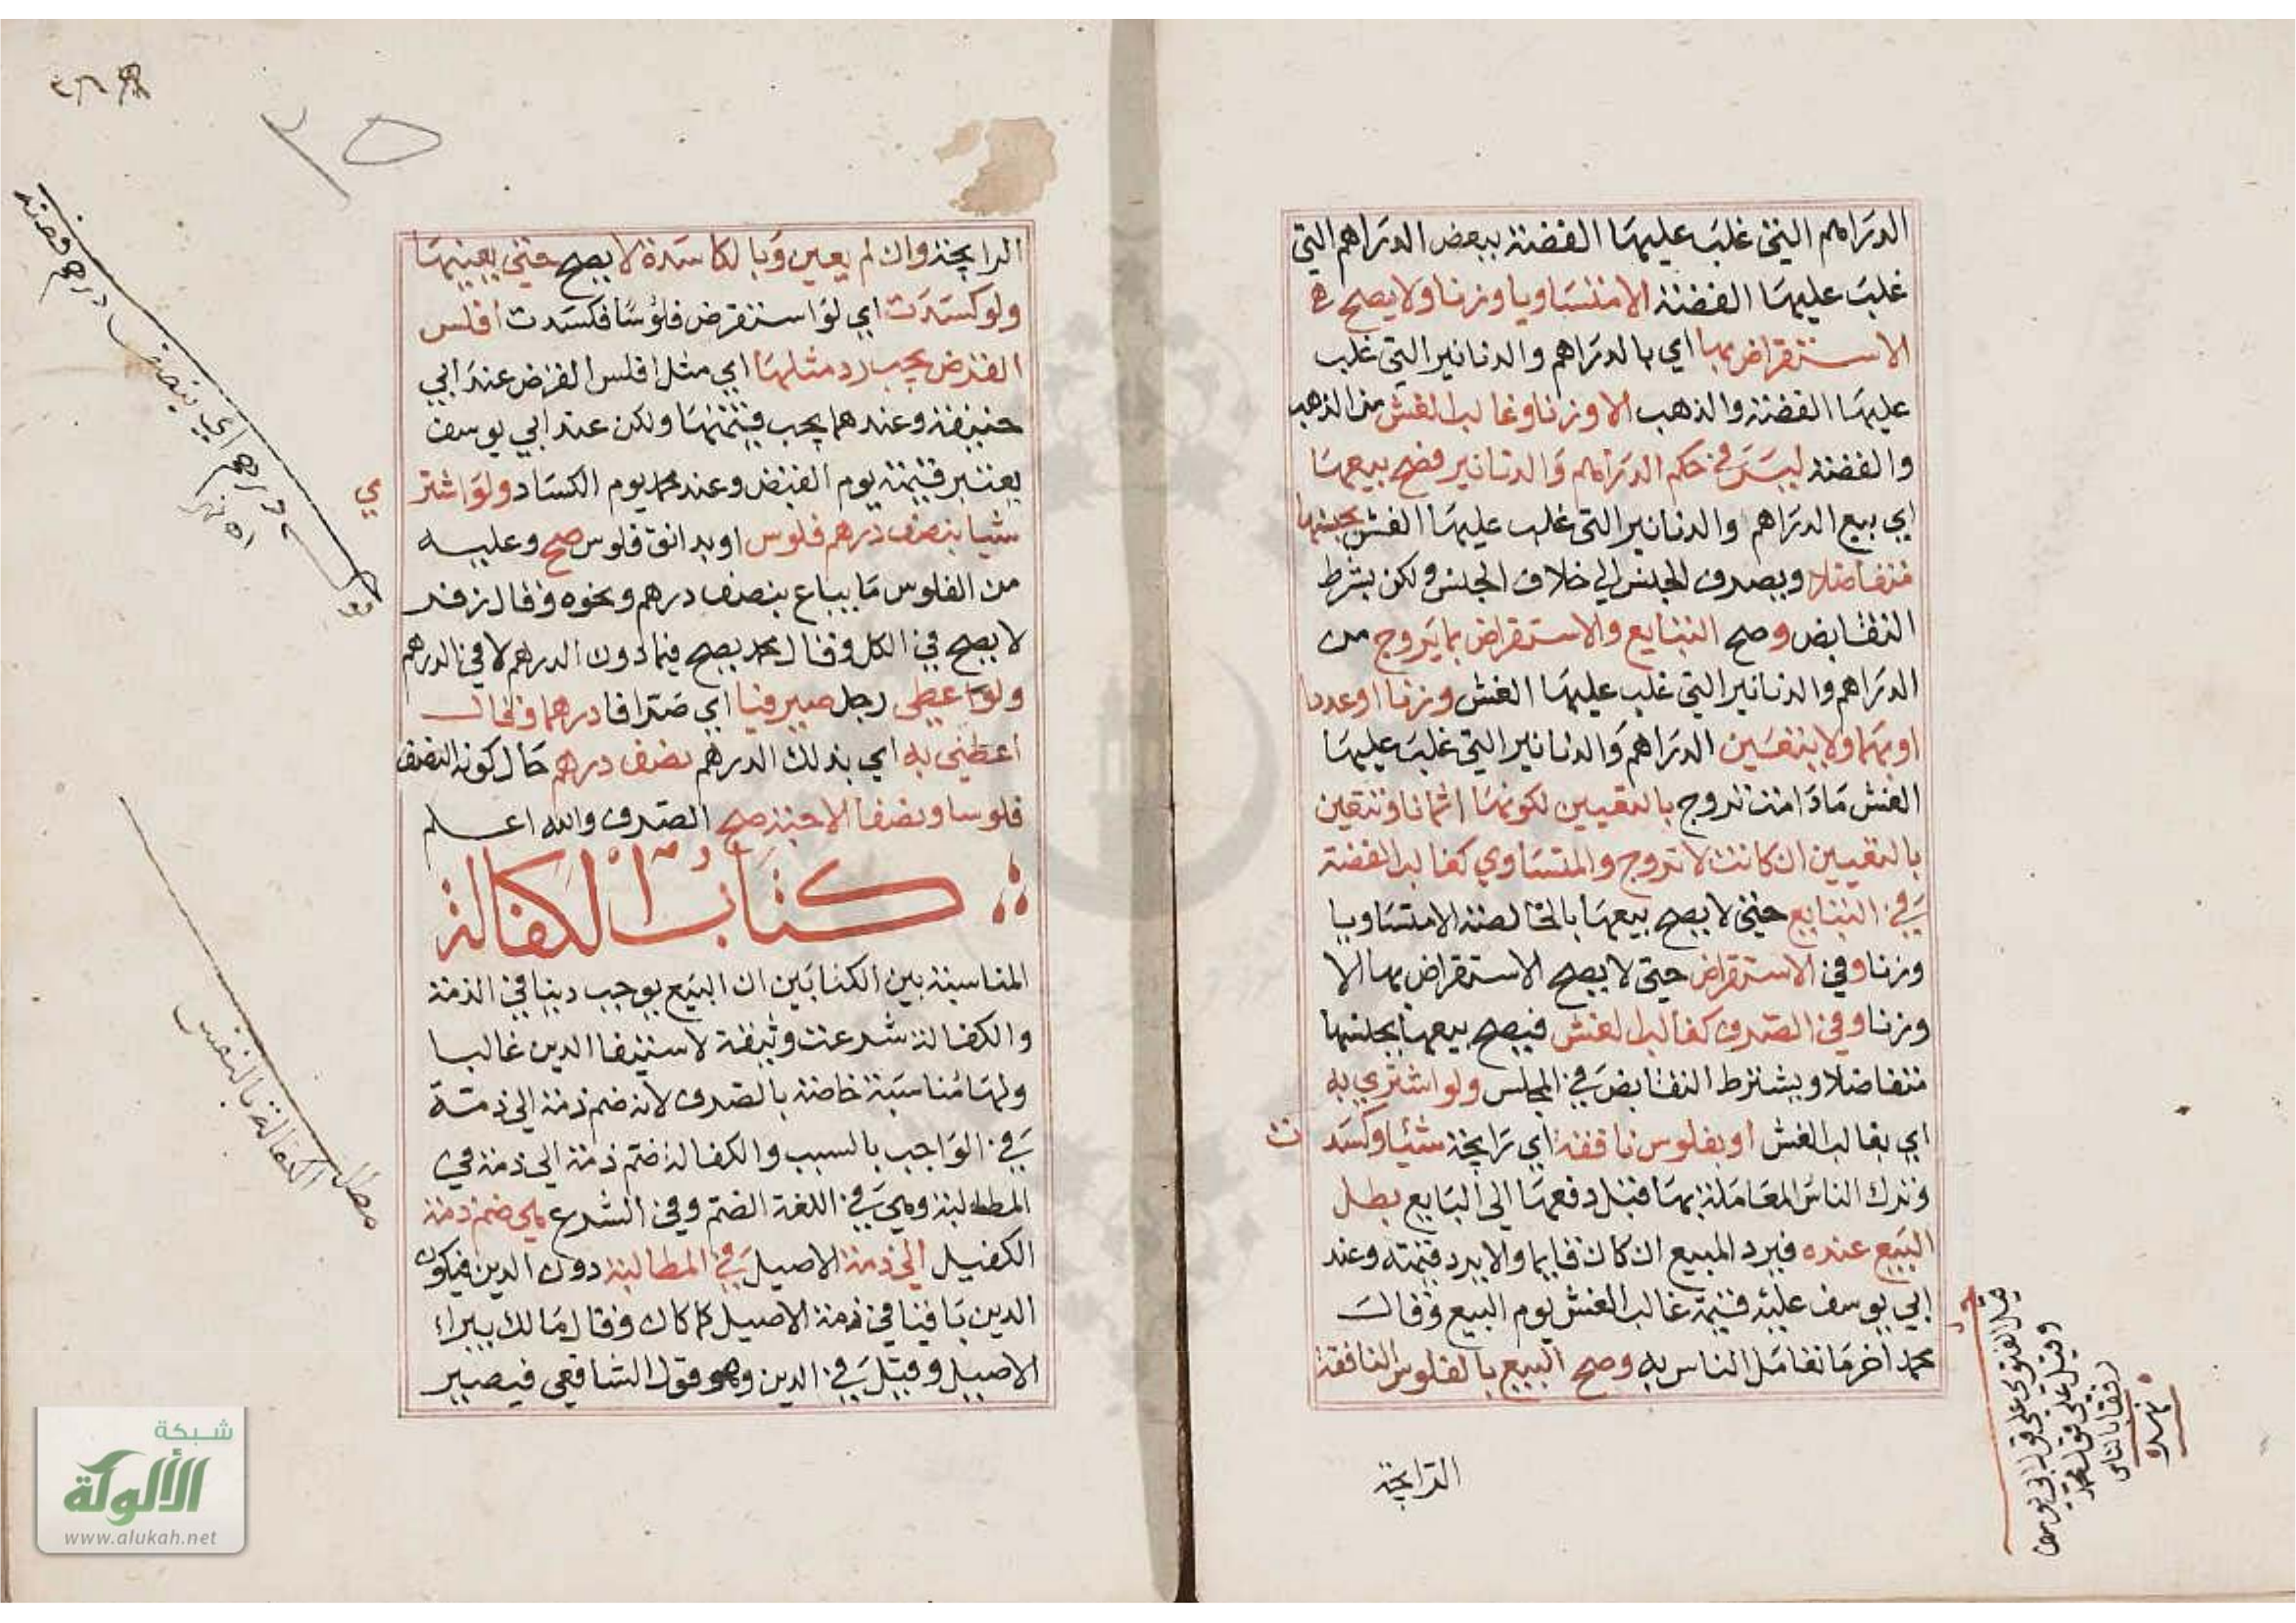 الدراهم التي غلب عليها الفضة ببعض الدراهم التي
غلب عليها الفضة الا متساويا وزنا ولا يصح
الاستقراض بها اي بالدراهم والدنانير التي غلب
عليها الفضة والذهب الا وزنا وغالب الغش من الذهب
والفضة ليس في حكم الدراهم والدنانير فصح بيعها
اي بيع الدراهم والدنانير التي غلب عليها الغش بجنسها
متفاضلا ويصرف الجنس الي خلاف الجنس ولكن بشرط
التقابض وصح التبايع والاستقراض بما يروج من
الدراهم والدنانير التي غلب عليها الغش وزنا او عددا
او بهما ولا يتعين الدراهم والدنانير التي غلب عليها
الغش ما دامت تروج بالتعيين لكونها اثمانا وتتعين
بالتعيين ان كانت لا تروج والمتساوي كغالب الفضة
في التبايع حتي لا يصح بيعها بالخالصة الا متساويا
وزنا وفي الاستقراض حتي لا يصح الاستقراض بها الا
وزنا وفي الصرف كغالب الغش فيصح بيعها بجنسها
متفاضلا ويشترط التقابض في المجلس ولو اشتري به
اي بغالب الغش او بفلوس نافقة اي رايجة شيئا وكسدت
وترك الناس المعاملة بها قبل دفعها الي البايع بطل
البيع عنده فيرد المبيع ان كان قايما والا يرد قيمته وعند
ابي يوسف عليه قيمة غالب الغش يوم البيع وقال
محمد اخر ما تعامل الناس به وصح البيع بالفلوس النافقة
الرايجة
قيل الفتوي علي قول ابي يوسف
وقيل علي قول محمد
رفقا بالناس
نهر
الرايجة وان لم يعين وبالكاسدة لا يصح حتي يعينها
ولو كسدت اي لو استقرض فلوسا فكسدت افلس
القرض يجب رد مثلها اي مثل افلس القرض عند ابي
حنيفة وعندهما يجب قيمتها ولكن عند ابي يوسف
يعتبر قيمته يوم القبض وعند محمد يوم الكساد ولو اشتري
شيا بنصف درهم فلوس او بدانق فلوس صح وعليه
من الفلوس ما يباع بنصف درهم ونحوه وقال زفر
لا يصح في الكل وقال محمد يصح فيما دون الدرهم لا في الدرهم
ولو اعطي رجل صيرفيا اي صرافا درهما وقال
اعطني به اي بذلك الدرهم نصف درهم حال كونه النصف
فلوسا ونصفا الا حبة صح الصرف والله اعلم
كتاب الكفالة
المناسبة بين الكتابين ان البيع يوجب دينا في الذمة
والكفالة شرعت وثيقة لاستيفا الدين غالبا
ولها مناسبة خاصة بالصرف لانه ضم ذمة الي ذمة
في الواجب بالسبب والكفالة ضم ذمة الي ذمة في
المطالبة وهي في اللغة الضم وفي الشرع هي ضم ذمة
الكفيل الي ذمة الاصيل في المطالبة دون الدين فيكون
الدين باقيا في ذمة الاصيل كما كان وقال مالك يبراء
الاصيل وقيل في الدين وهو قول الشافعي فيصير
درهم اي بنصف درهم فضة
مطلب
الكفالة بالنفس
شبكة
الألوكة
www.alukah.net